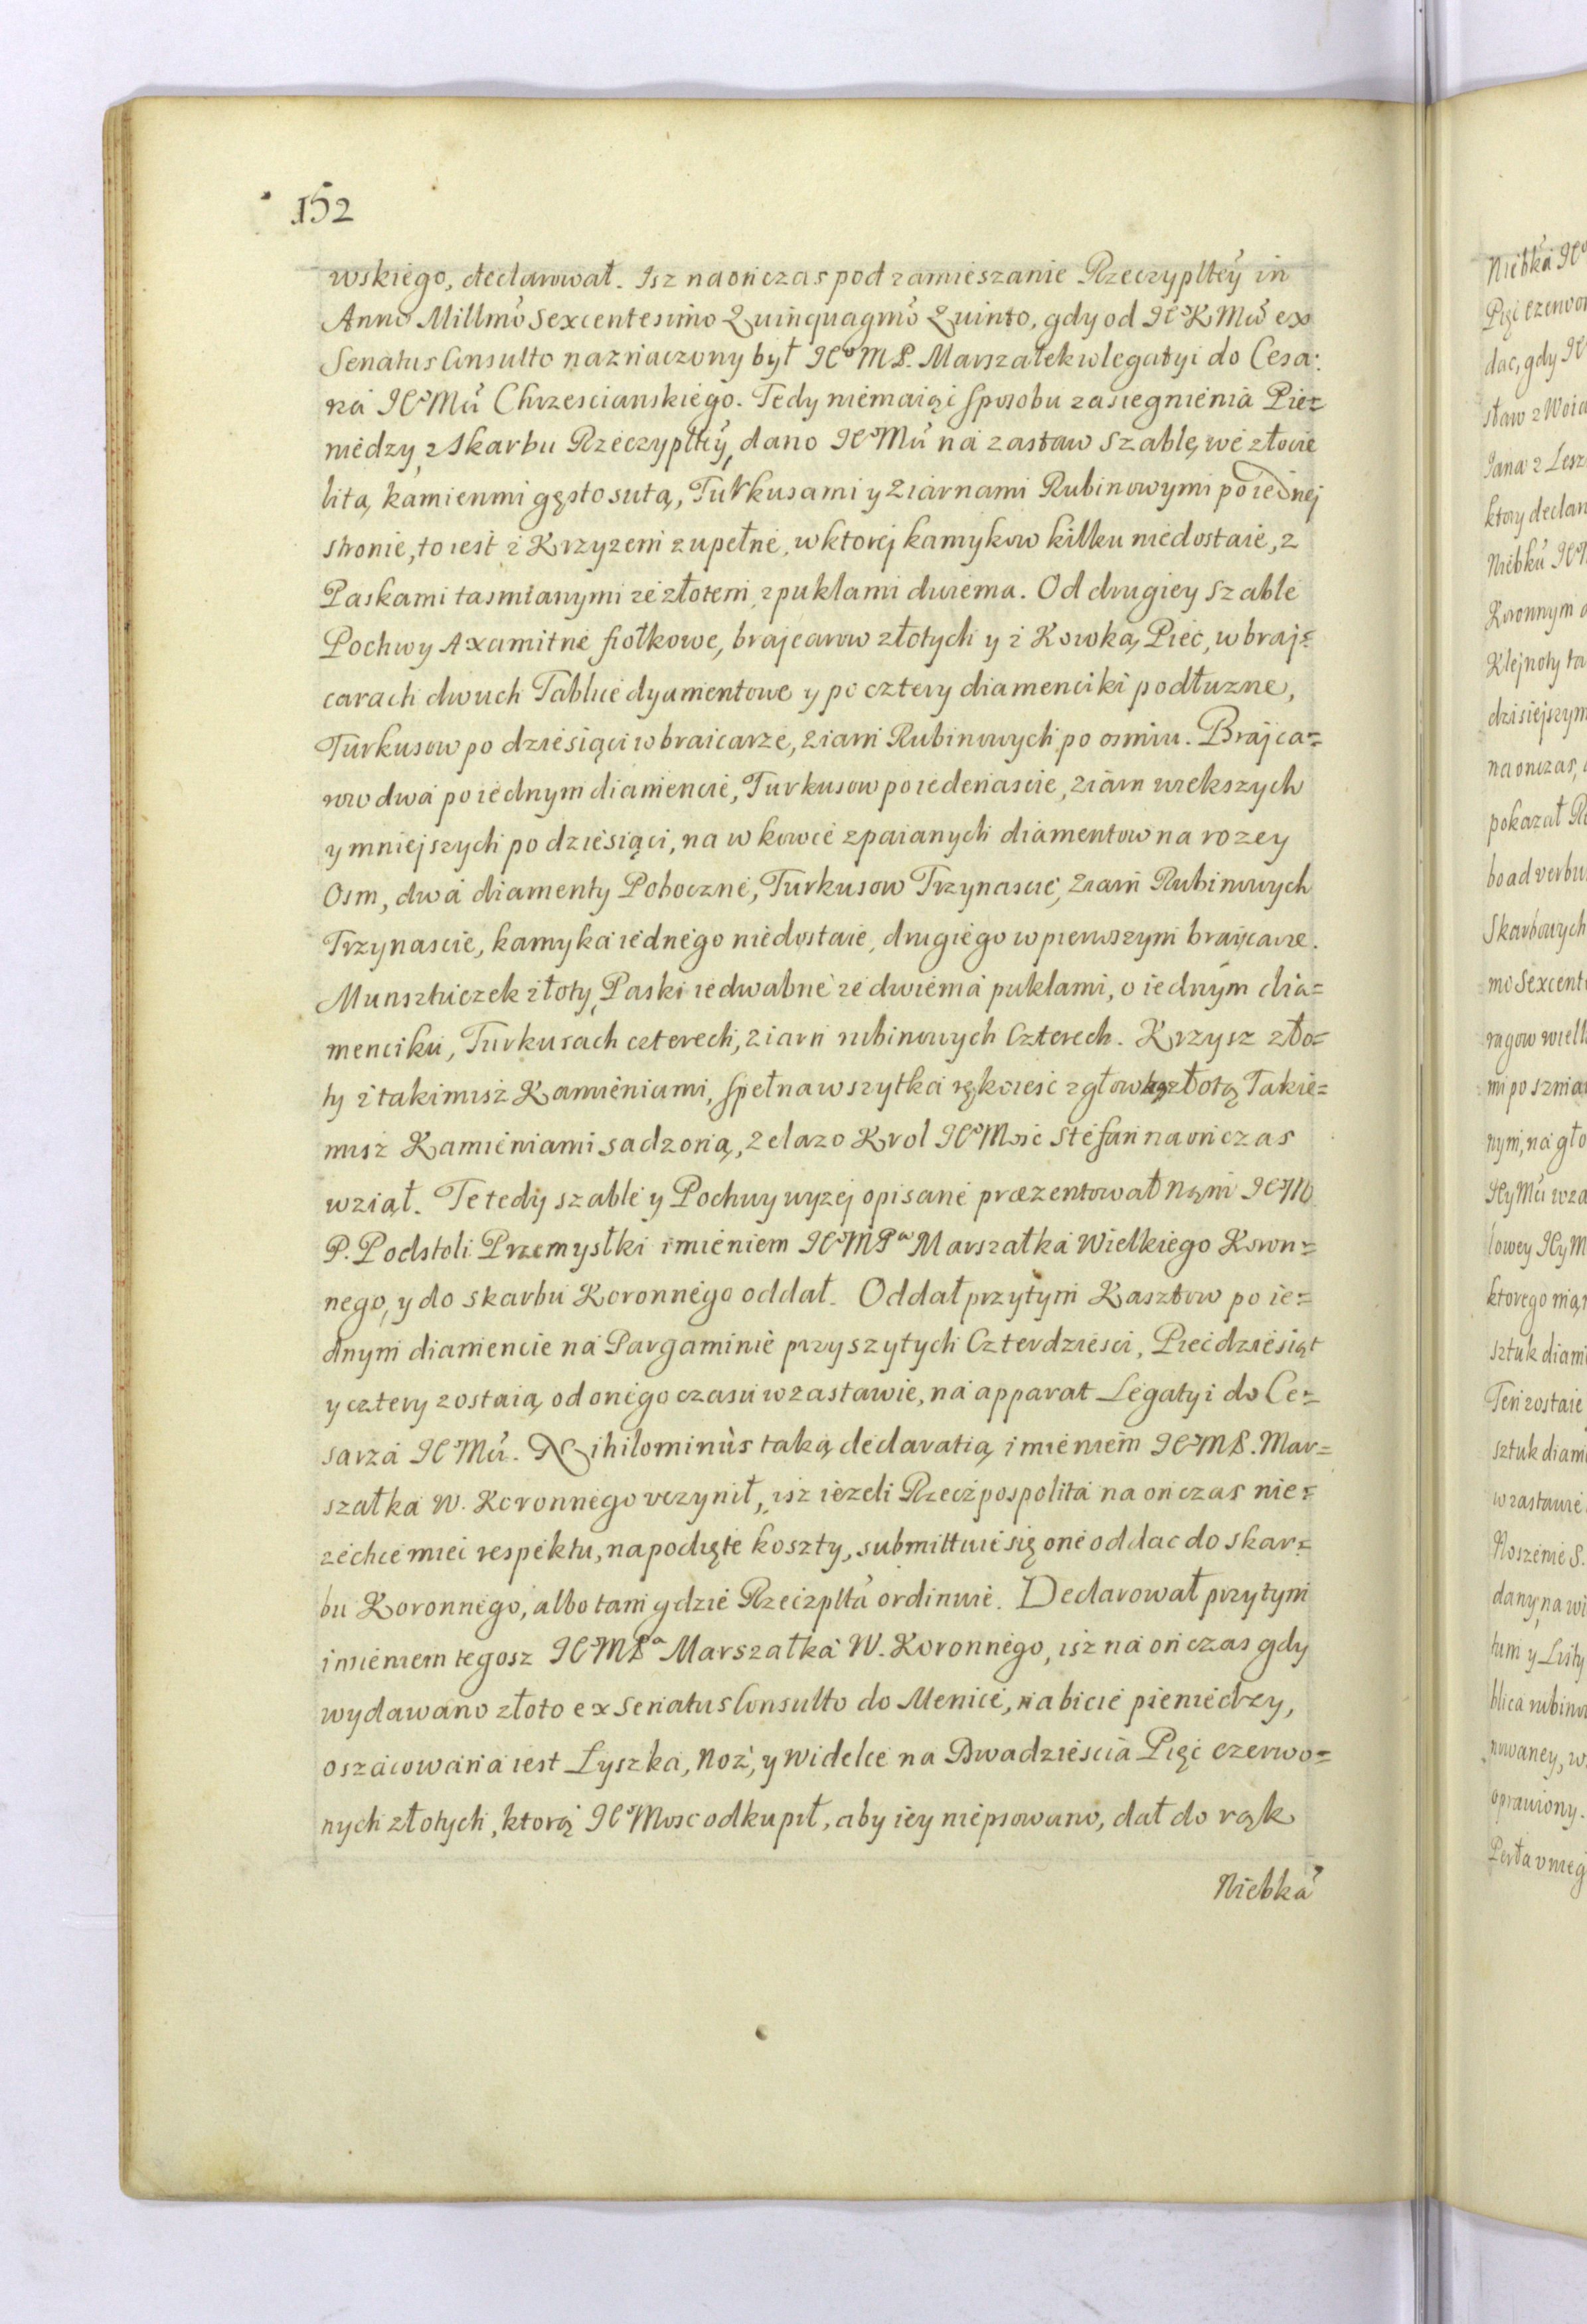 152
wskiego, declarował. Isz naonczas pod zamieszanie Rzeczypltey in
Anno Millmo Sexcentesimo Quinquagmo Quinto, gdy od JeoKMći ex
Senatus Consulto naznaczony był JeoMP. Marszałek w legatyi do Cesa:
rza JeoMći Chrzescianskiego. Tedy niemaiąc sposobu zasiegnienia Pie=
niedzy, z Skarbu Rzeczypltey, dano JeoMći na zastaw Szablę, we złocie
litą, kamienmi gęsto sutą, Turkusami y Ziarnami Rubinowymi po iednej
stronie, to iest z Krzyzem zupełne, w ktorej kamykow kilku niedostaie, z
Paskami tasmianymi ze złotem, z puklami dwiema. Od drugiey szable
Pochwy Axamitne fiołkowe, brajcarow złotych y z Kowką, Pięc, w braj=
carach dwuch Tablice dyamentowe y po cztery diamenciki podłuzne,
Turkusow po dziesiąci w braicarze, ziarn Rubinowych po osmiu. Brajca=
row dwa po iednym diamencie, Turkusow po iedenascie, ziarn wiekszych
y mniejszych po dziesiąci, na w kowce zpaianych diamentow na rozey
Osm, dwa diamenty Poboczne, Turkusow Trzynascie, Ziarn Rubinowych
Trzynascie, kamyka iednego niedostaie, drugiego w pierwszym braijcarze.
Munsztuczek złoty, Paski iedwabne ze dwiema puklami, o iednym dia=
menciku, Turkusach czterech, ziarn rubinowych Czterech. Krzysz zło=
ty z takimisz Kamieniami, spełna wszytka rękoiesc z głowką złotą Takie=
misz Kamieniami sadzoną, Zelazo Krol JeoMosc Stefan naonczas
wziął. Te tedy szable y Pochwy wyzej opisane præzentował Nam JeoM
P. Podstoli Przemysłki imieniem JeoMPa Marszałka Wielkiego Koron=
nego, y do skarbu Koronnego oddał. Oddał przytym Kasztow po ie=
dnym diamencie na Pargaminie przyszytych Czterdziesci, Piecdziesiąt
y cztery zostaią, od onego czasu w zastawie, na apparat Legatyi do Ce=
sarza JeoMći. Nihilominus taką declaratią, imieniem JeoMP. Mar=
szałka W. Koronnego vczynił, isz iezeli Rzeczpospolita na onczas nie=
zechce miec respektu, na podięte koszty, submittuie się one oddac do skar=
bu Koronnego, albo tam gdzie Rzeczplta ordinuie. Declarował przytym
imieniem tegosz JeoMPa Marszałka W. Koronnego, isz na onczas gdy
wydawano złoto ex Senatus Consulto do Menice, na bicie pieniedzy,
oszacowana iest Lyszka, Noz, y Widelce na Dwadziescia Pięc czerwo=
nych złotych, ktorą JeoMosc odkupił, aby iey niepsowano, dał do rąk
Niebka